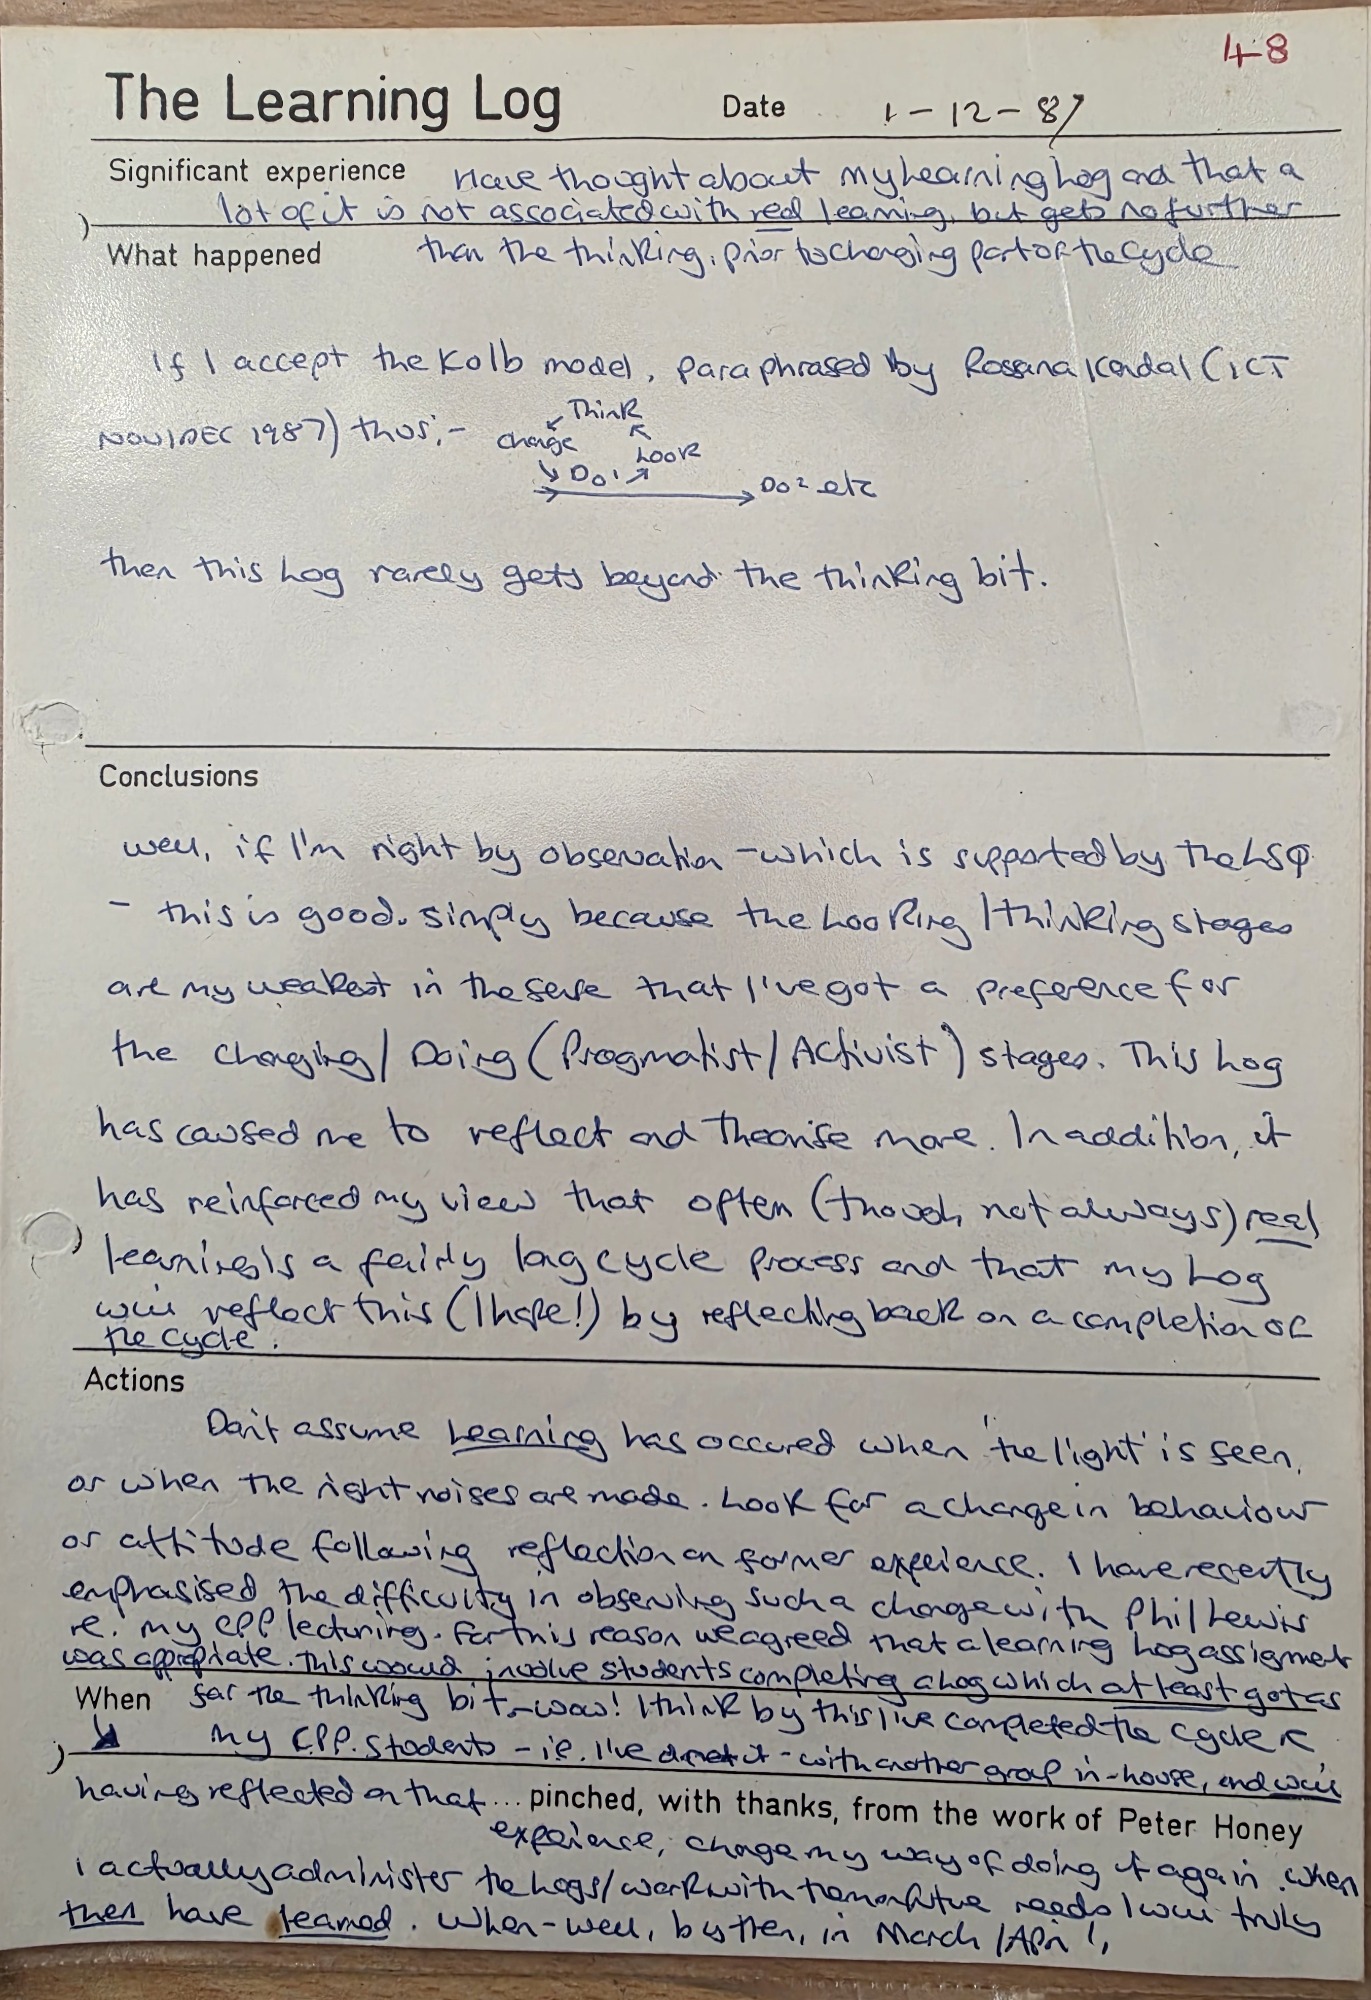 48
The Learning Log Date 1-12-87
Significant experience Have thought about my Learning Log and that a
lot of it is not associated with real learning, but gets no further
What happened than the thinking, prior to changing part of the cycle
If I accept the Kolb model, paraphrased by Rossana Kendal (ICT
NOV/DEC 1987) thus:-
Think
Change
Look
Do¹
Do² etc
then this Log rarely gets beyond the thinking bit.
Conclusions
Well, if I'm right by observation - which is supported by the LSQ
- this is good. Simply because the Looking/thinking stages
are my weakest in the sense that I've got a preference for
the changing/Doing (Pragmatist/Activist) stages. This Log
has caused me to reflect and Theorise more. In addition, it
has reinforced my view that often (though not always) real
learning is a fairly long cycle process and that my Log
will reflect this (I hope!) by reflecting back on a completion of
the cycle.
Actions
Don't assume Learning has occured when 'the light' is seen,
or when the right noises are made. Look for a change in behaviour
or attitude following reflection on former experience. I have recently
emphasised the difficulty in observing such a change with Phil Lewis
re. my CPP lecturing. For this reason we agreed that a learning Log assignmet
was appropriate. This would involve students completing a Log which at least got as
When far the thinking bit - wow! I think by this I've completed the cycle re
my CPP. Students - i.e. I've done it - with another group in-house, and will
having reflected on that
... pinched, with thanks, from the work of Peter Honey
experience, change my way of doing it again. When
I actually administer the Logs/work with them future needs I will truly
then have learned. When - well, by then, in March/April,